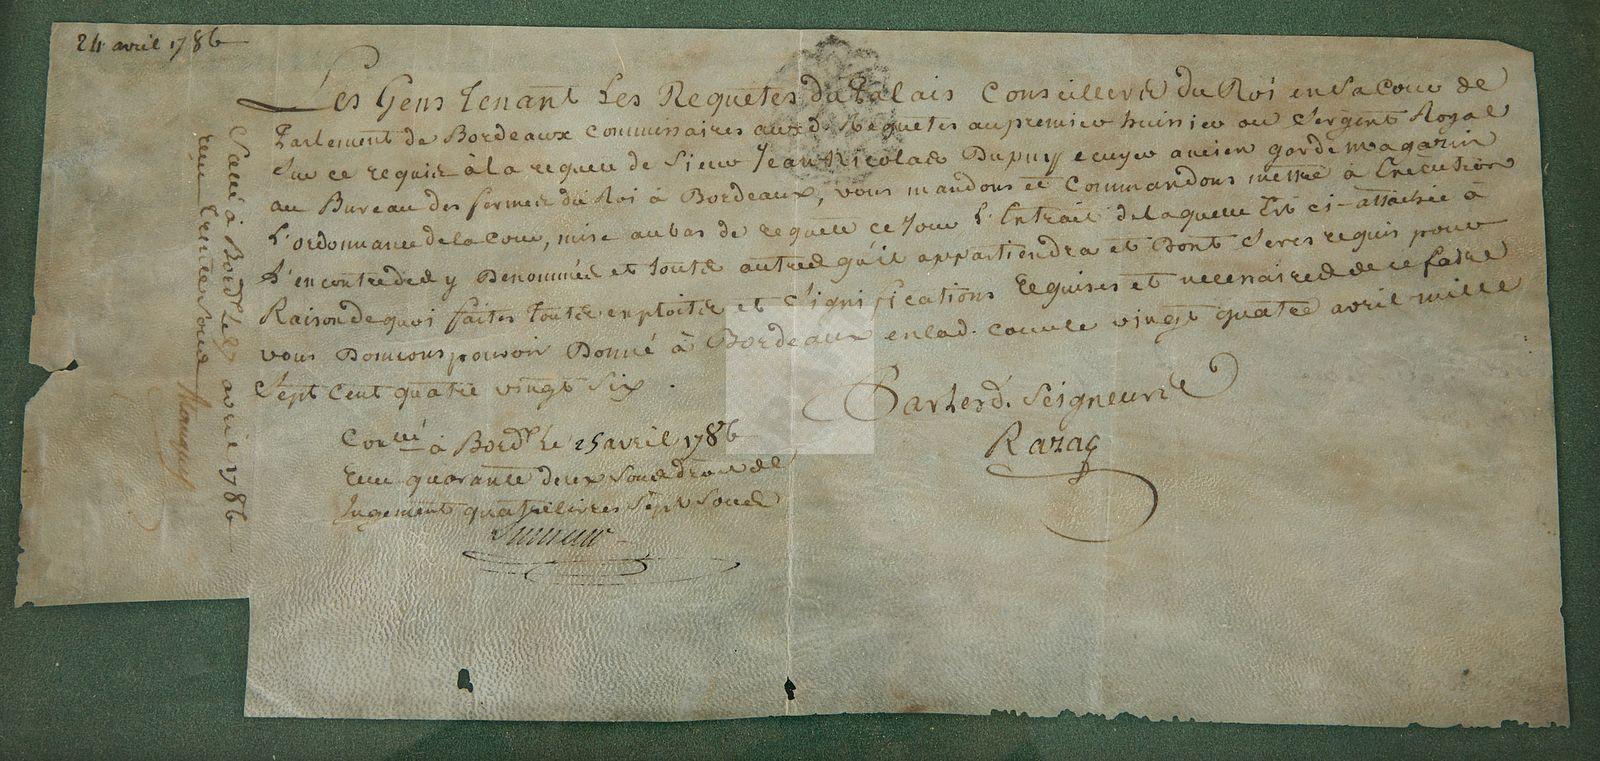 24 avril 1786
Les Gens tenant Les Requêtes du Palais Conseillers du Roi en sa Cour de
Parlement de Bordeaux commissaires auxd. Requetes au premier huissier ou Sergent Royal
Sur ce requis à la requete de Sieur Jean Nicolas Dupuy ecuyer ancien garde magazin
au Bureau des fermes du Roi à Bordeaux, vous mandons et Commandons mettre à Execution
L'ordonnance de la Cour, mise au bas de requete ce jour L'Extrait de laquelle Est ci-attachée à
L'encontre des y Denommés et toutes autres qu'il appartiendra et Dont Seres requis pour
Raison de quoi faites toutes exploits et Significations requises et necessaires de ce faire
vous Donnons pouvoir Donné à Bordeaux en lad. Cour le vingt quatre avril mille
Sept Cent quatre vingt Six.
Par lesd. Seigneurs
Razac
à Bordx. le 25 avril 1786
Reçu quarante deux sous droit de
Jugement quatre livres Sept Sous
Scellé à Bordx. le avril 1786
reçu trente sous